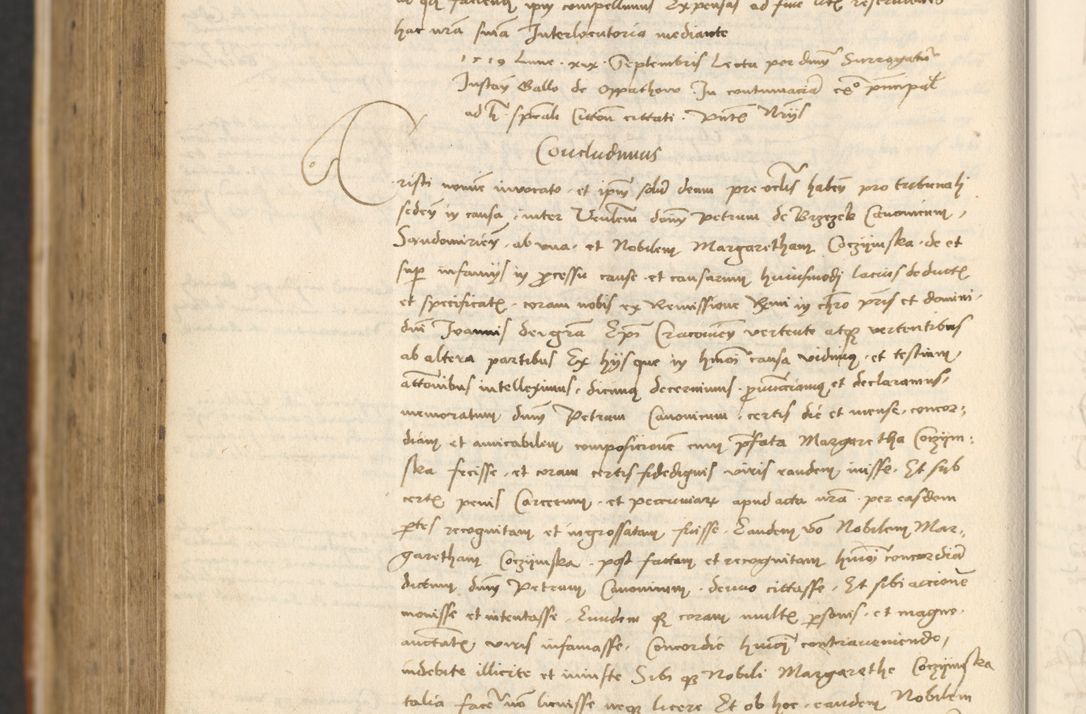 hac nrã sniã Interlocutoria mediante
1519 Lune xix Septembris Lecta per dnuʒ Surrogatũ
Instan Gallo de Oppathow In contumaciã
ad spcãli Citton cittati
Concludimus
risti nomine invocato et ipm solũ deum pre oclis haben pro tribunali
seden in causa inter Venlem dnm Petrum de Brzezek Canonicum
Sandomirien ab una et Nobilem Margaretham Coczijmska de et
sup infamijs in pcessu cause et causarum huiusmodi lacius deduct
et specificat coram nobis ex Remissione Rmi in chro pris et domini
dni Joannis dei gra Epi Cracovien vertente atqʒ vertentibus
ab altera partibus Ex hijs que in hmoi causa vidimus et testium
attonibus intelleximus dicimus decernimus et declaramus
memoratum dnm Petrum Canonicum certis die et mense concor:
diam et amicabilem composicione cum pfata Margaretha Coczijm:
ska fecisse et coram certis fidedignis viris eandem inisse Et sub
cert penis Carcerum et pecuniar apud acta nra per easdem
ptes recognitam et ingrossatam fuisse Eandem vo Nobilem Mar:
garetham Coczijmska post factam et recognitam hmoi concordiã
dictum dnm Petrum Canonicum denuo cittasse Et sibi accione
monisse et intentasse Eundem qʒ coram mult psonis et magne
auctoritat viris infamasse Concordie hmoi contraveniendo
indebite illicite et iniuste Sibi qʒ Nobili Margarethe Coczijmska
talia face no licuisse neqʒ licere Et ob hoc eandem Nobilem